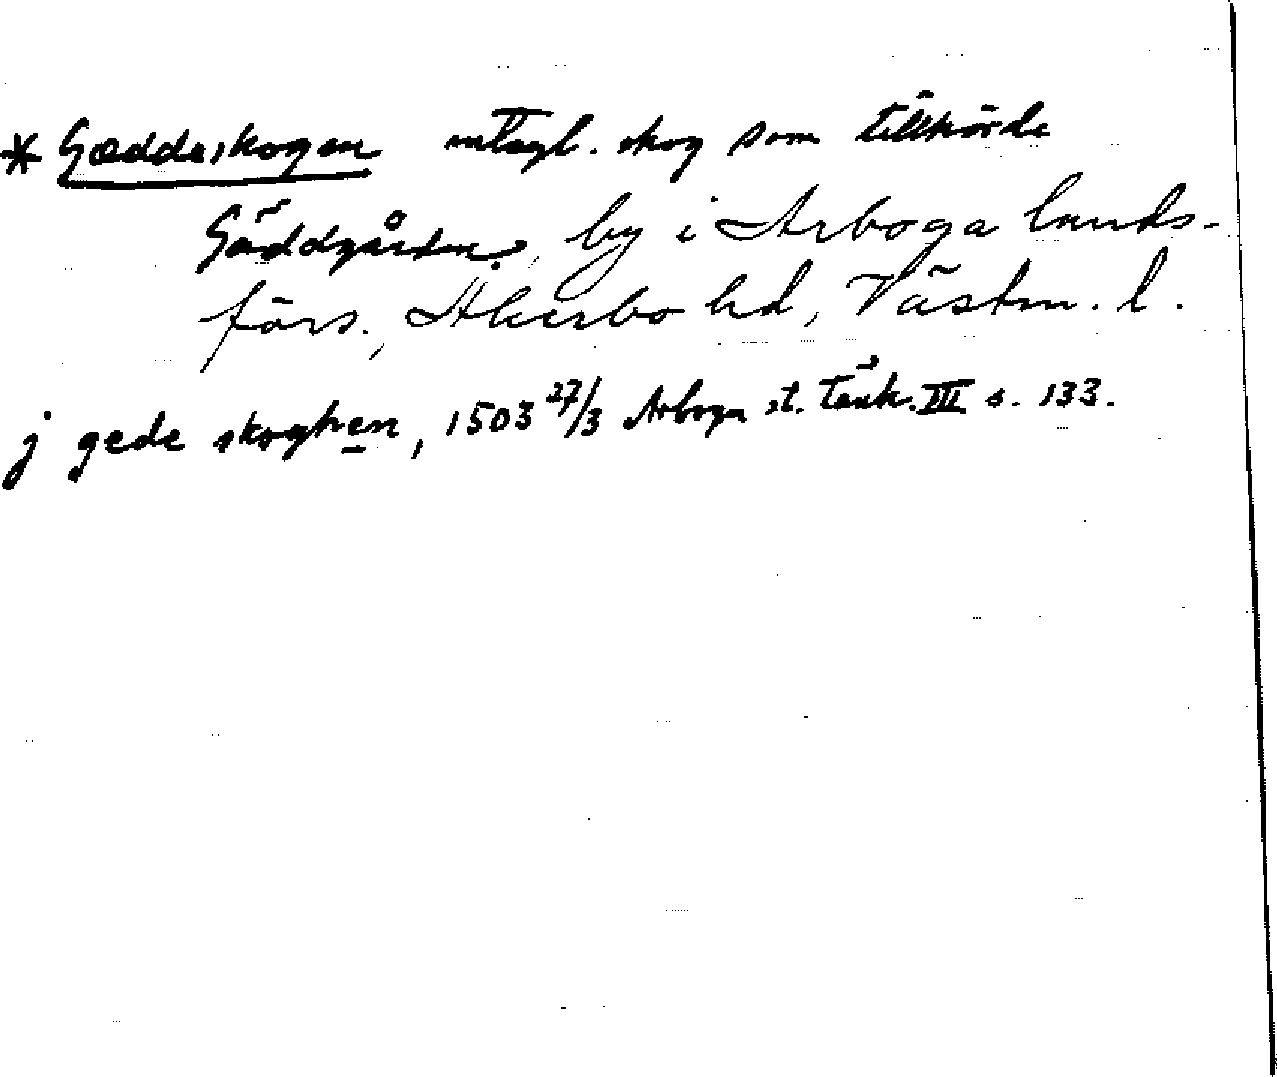 * Gæddeskogen mtagl. skog som tillhörde
Gäddgården, by i Arboga lands-
förs., Åkerbo hd, Västm. l.
j gede skoghen, 1503 27/3 Arboga st. Tänk. III s. 133.